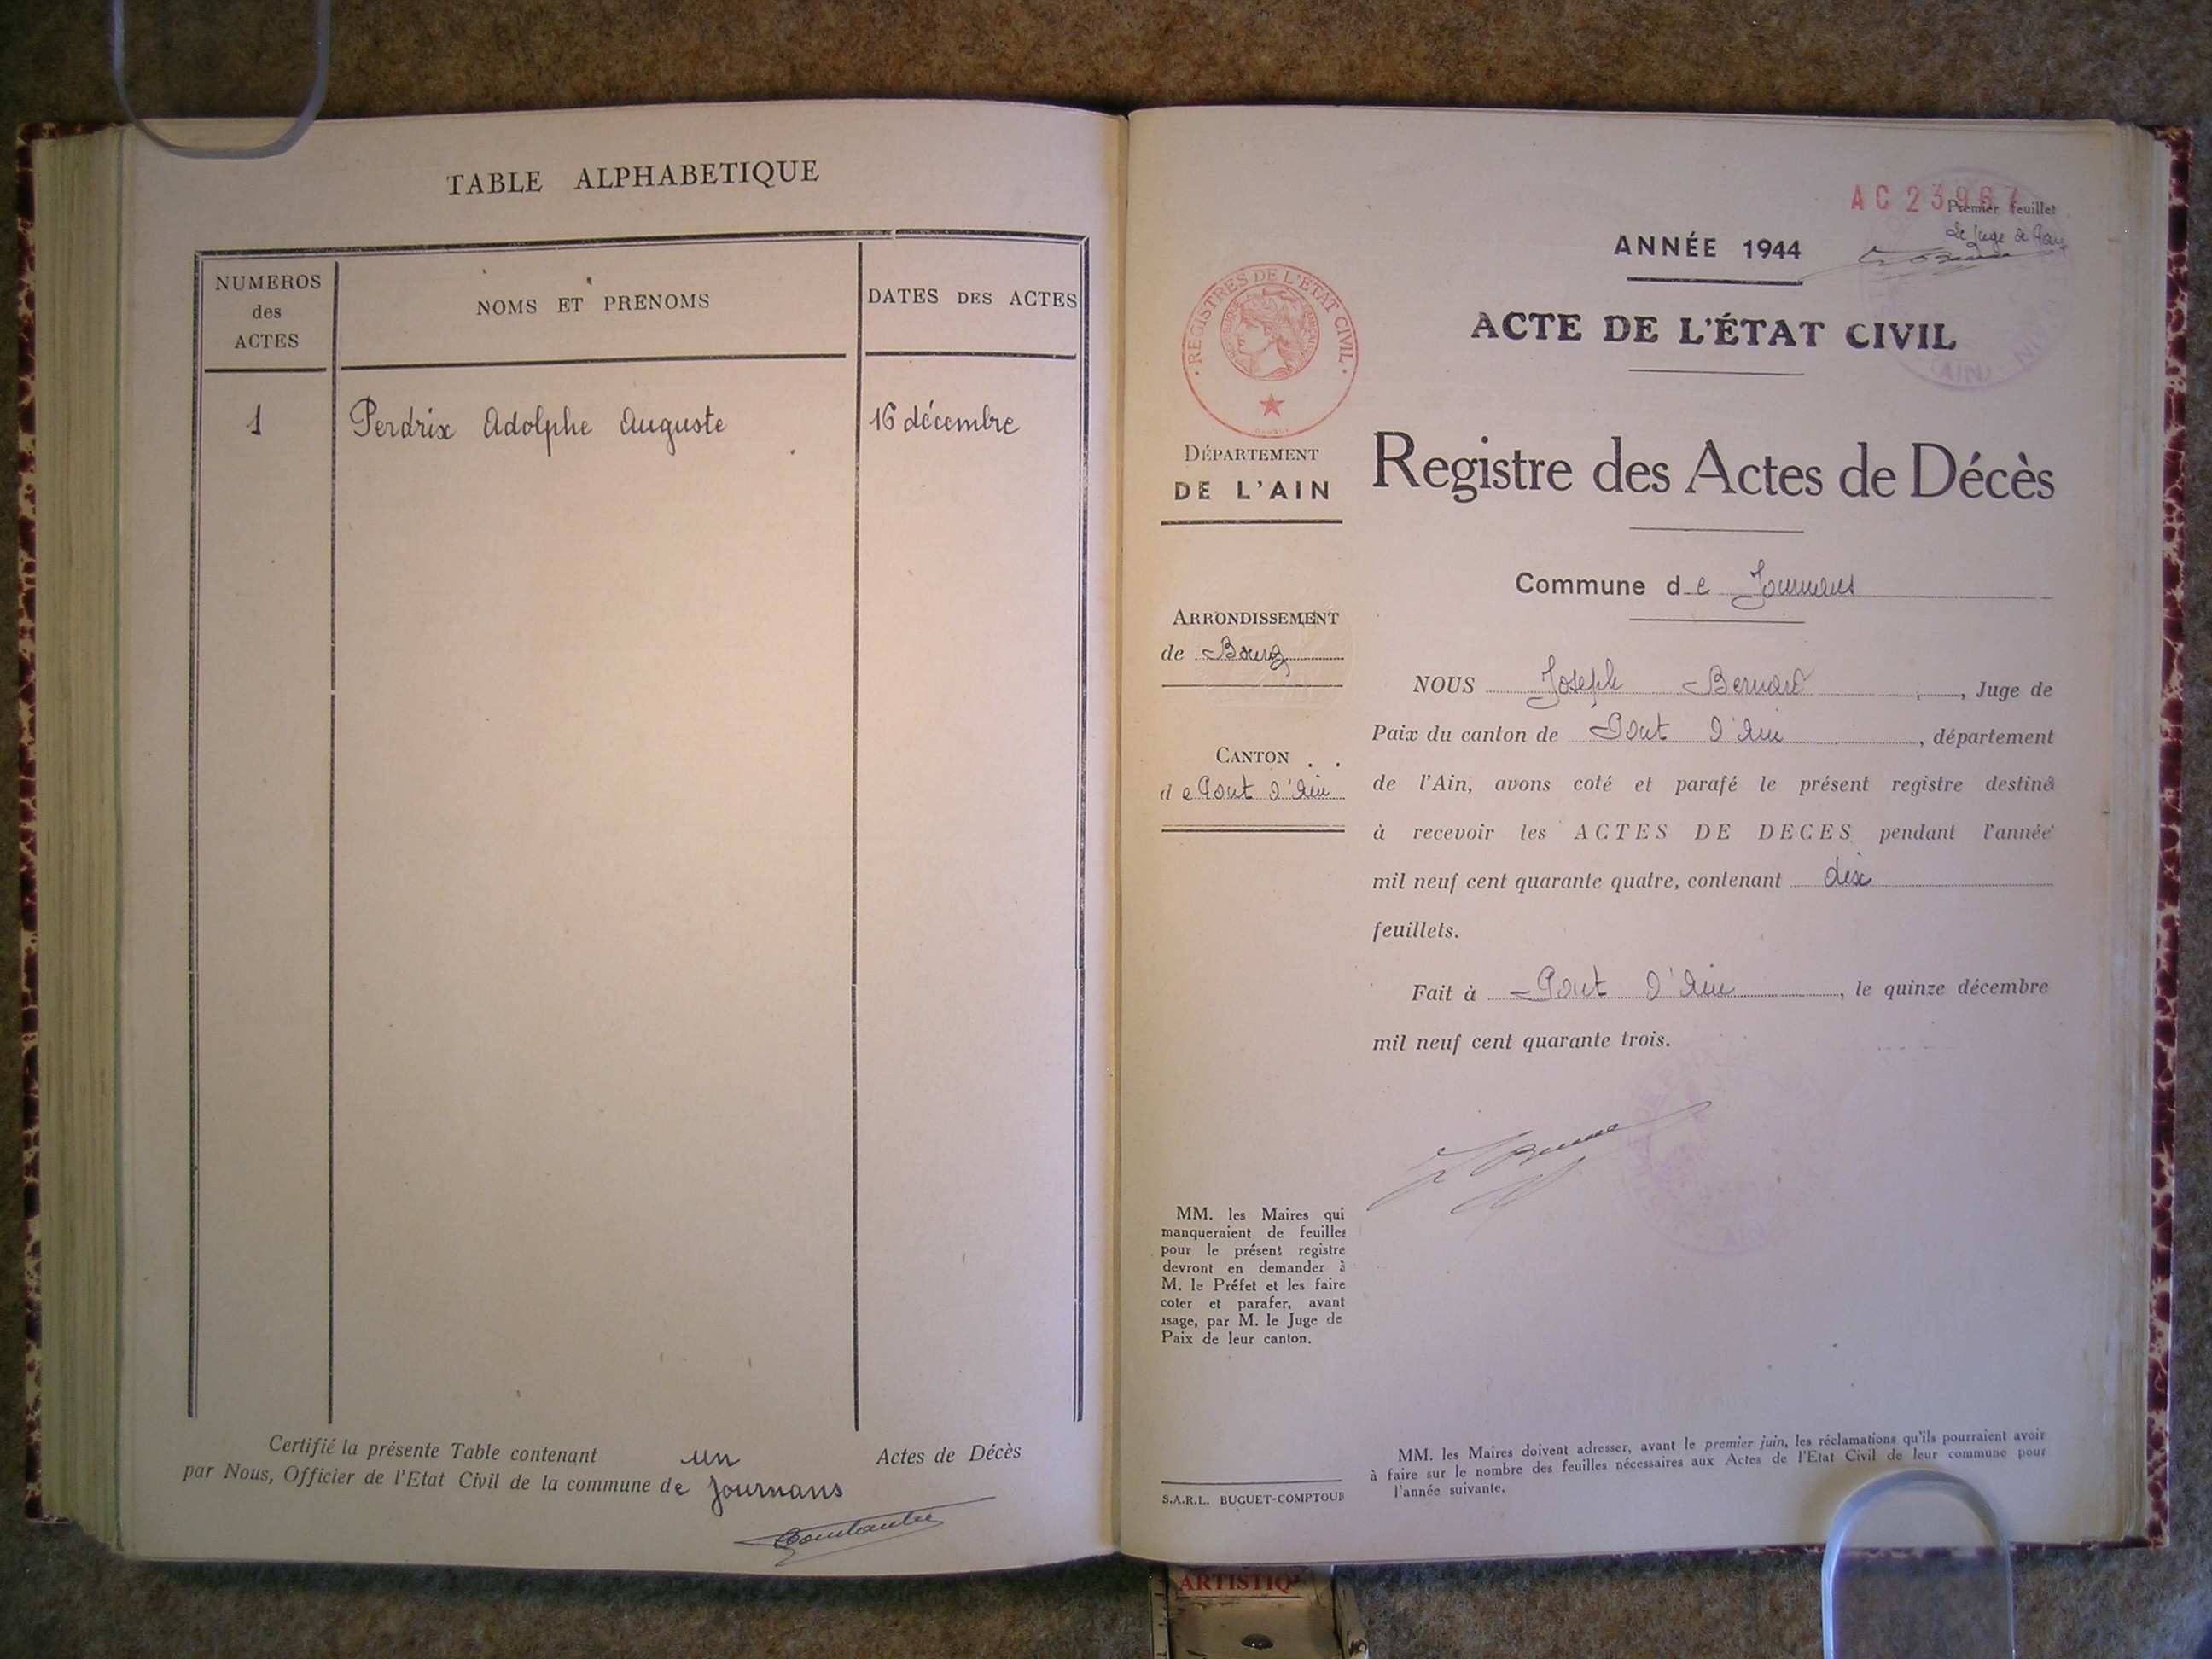 TABLE ALPHABETIQUE
NUMEROS
des
ACTES
NOMS ET PRENOMS
DATES DES ACTES
1 Perdrix Adolphe Auguste 16 décembre
Certifié la présente Table contenant un Actes de Décès
par Nous, Officier de l'Etat Civil de la commune de Journans
AC 2396
Premier feuillet
Le Juge de Paix
ANNÉE 1944
ACTE DE L'ÉTAT CIVIL
· REGISTRES DE L'ETAT CIVIL ·
DÉPARTEMENT
DE L'AIN
Registre des Actes de Décès
Commune de Journans
ARRONDISSEMENT
de Bourg
CANTON
de Pont d'Ain
NOUS Joseph Bernard, Juge de
Paix du canton de Pont d'Ain, département
de l'Ain, avons coté et parafé le présent registre destiné
à recevoir les ACTES DE DECES pendant l'année
mil neuf cent quarante quatre, contenant dix
feuillets.
Fait à Pont d'Ain, le quinze décembre
mil neuf cent quarante trois.
MM. les Maires qui
manqueraient de feuilles
pour le présent registre
devront en demander à
M. le Préfet et les faire
coter et parafer, avant
usage, par M. le Juge de
Paix de leur canton.
S.A.R.L. BUGUET-COMPTOUR
MM. les Maires doivent adresser, avant le premier juin, les réclamations qu'ils pourraient avoir
à faire sur le nombre des feuilles nécessaires aux Actes de l'Etat Civil de leur commune pour
l'année suivante.
ARTISTIQ